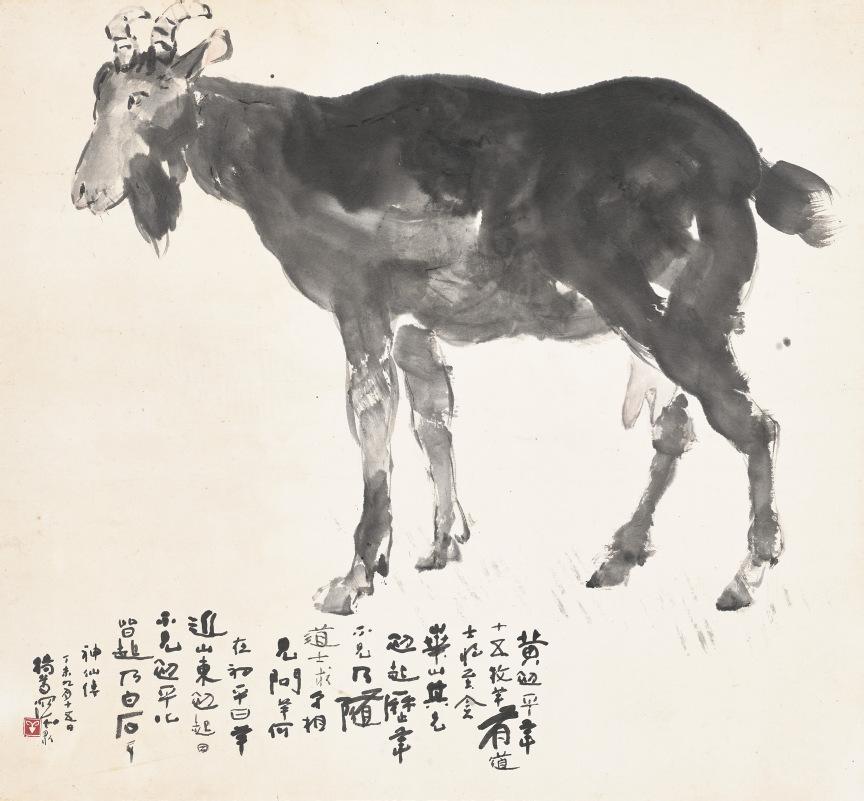 黄初平年
十五牧羊有道
士將至金
華山其兄
初起歷年
不見乃隨
道士求弟相
見問羊何
在初平曰羊
近山東初起曰
不見初平叱
皆起乃白石
神仙傳
丁未九月十五日
楊善深